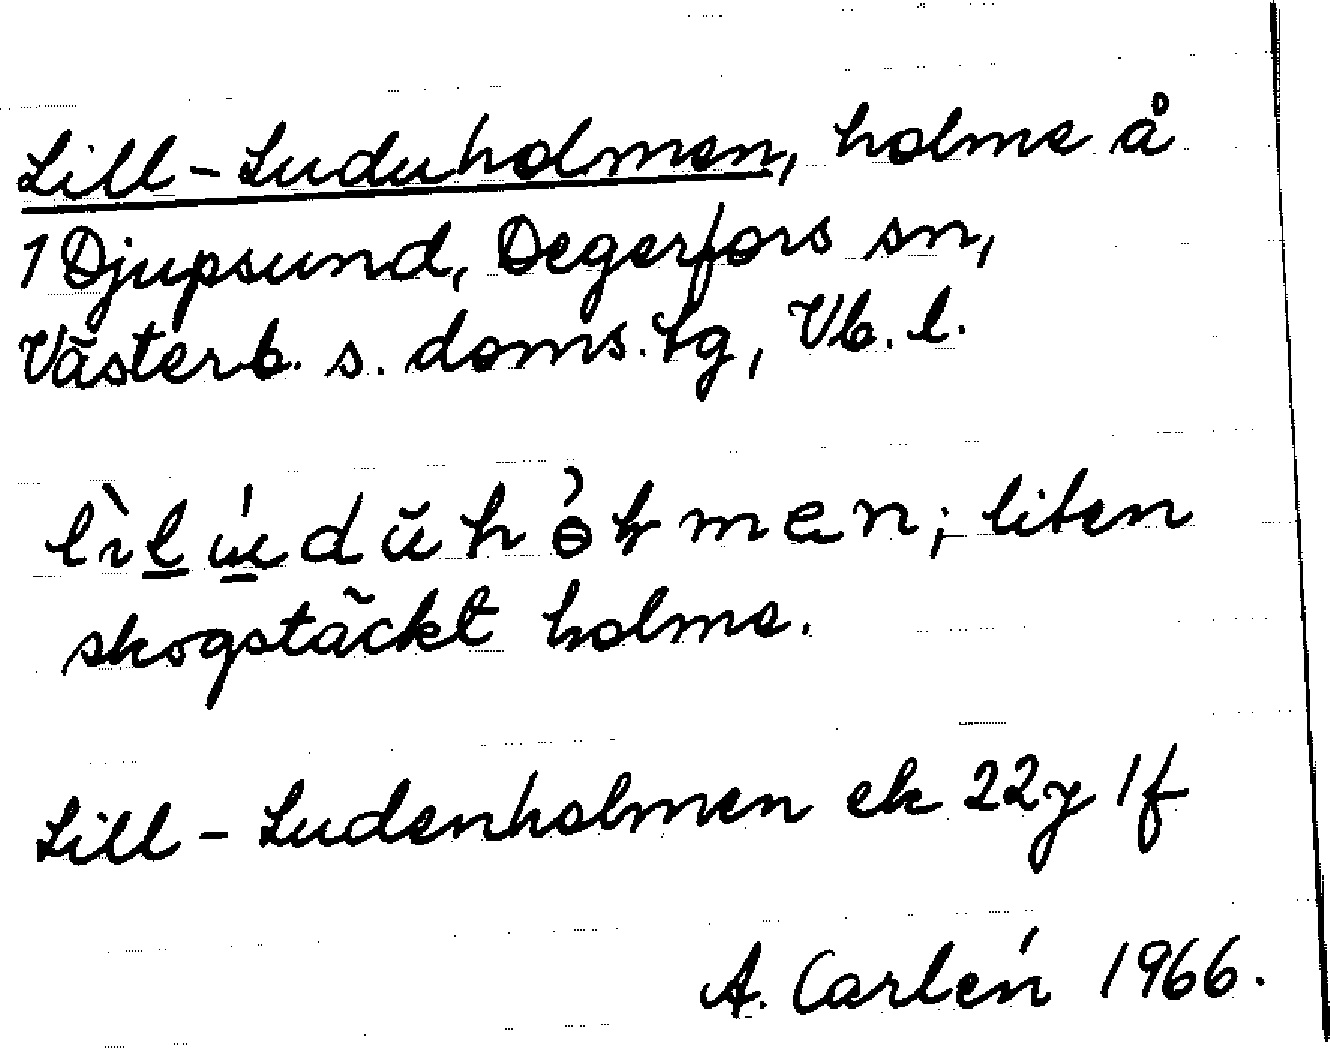 Lill-Luduholmen, holme å
1 Djupsund, Degerfors sn,
Västerb. s. doms. tg, Vb. l.
liten
skogstäckt holme.
Lill-Ludenholmen ek 22y 1f
A. Carlén 1966.